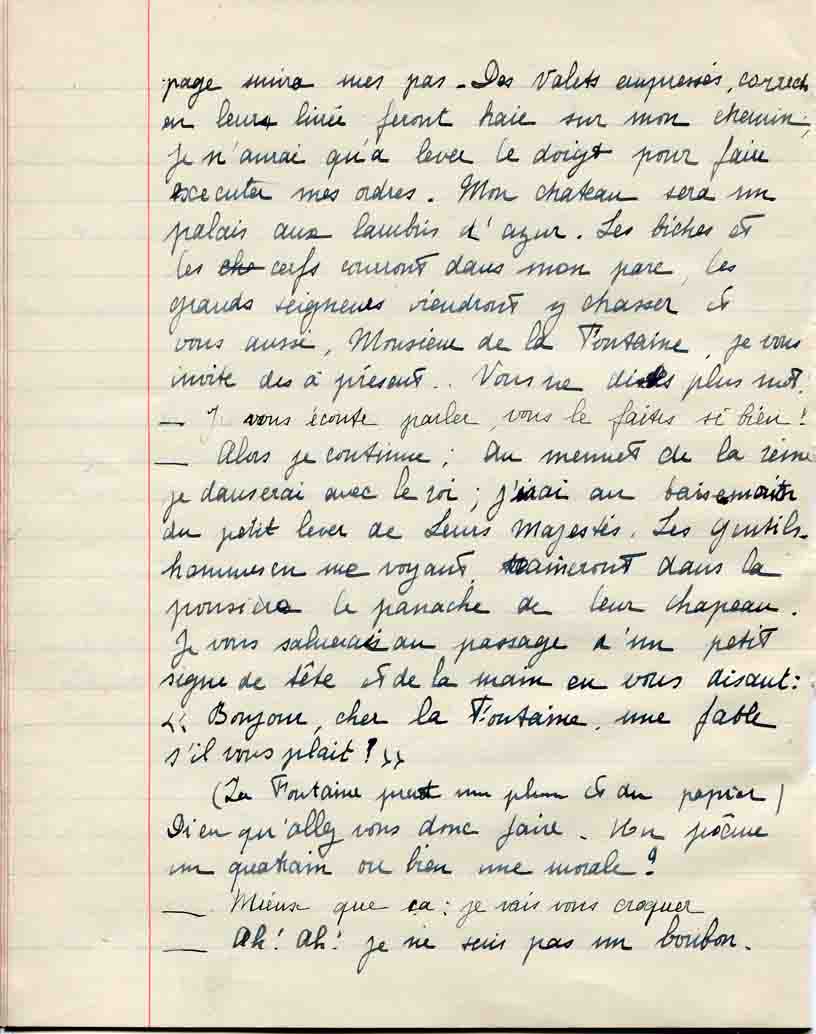 page suivra mes pas - Des Valets empressés, corrects
en leurs livrée feront haie sur mon chemin;
Je n'aurai qu'à lever le doigt pour faire
executer mes ordres. Mon chateau sera un
palais aux lambris d'azur. Les biches et
les che cerfs courront dans mon parc, les
grands seigneurs viendront y chasser et
vous aussi, Monsieur de la Fontaine, je vous
invite des à présent.. Vous ne dites plus mot.
— Je vous écoute parler, vous le faites si bien!
— Alors je continue; Au menuet de la reine
je danserai avec le roi; j'irai au baisemain
du petit lever de Leurs Majestés. Les Gentils-
hommes en me voyant, traineront dans la
pousière le panache de leur chapeau.
Je vous saluerais au passage d'un petit
signe de tête et de la main en vous disant:
« Bonjour, cher la Fontaine, une fable
s'il vous plait! »
(La Fontaine prend une plum et du papier)
Dieu qu'allez vous donc faire. Un poême
un quatrain ou bien une morale?
— Mieux que ca: je vais vous croquer
— Ah! Ah! je ne suis pas un bonbon.